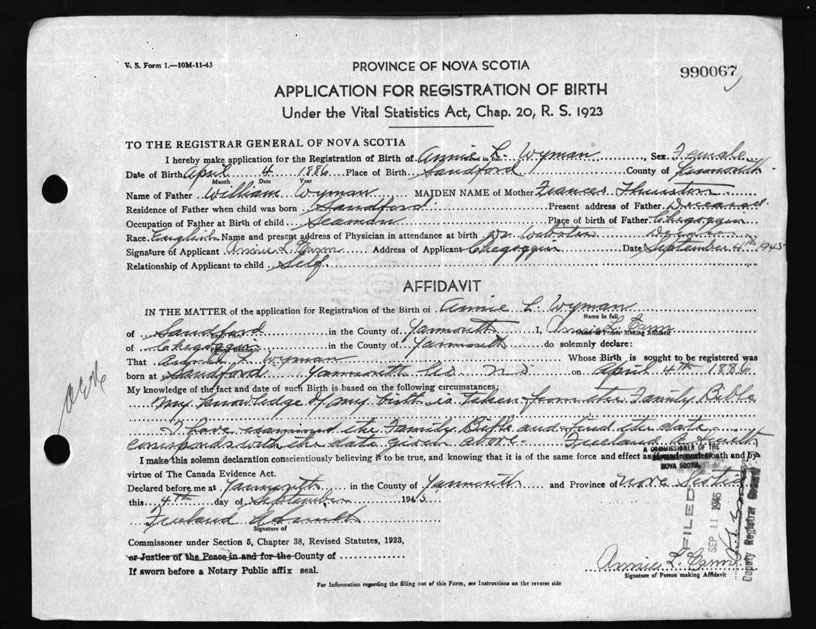 V. S. Form 1.—10M-11-43
PROVINCE OF NOVA SCOTIA
990067
APPLICATION FOR REGISTRATION OF BIRTH
Under the Vital Statistics Act, Chap. 20, R. S. 1923
TO THE REGISTRAR GENERAL OF NOVA SCOTIA
I hereby make application for the Registration of Birth of Annie L. Wyman, Sex Female
Date of Birth April 4 1886 Place of Birth Sandford County of Yarmouth
Month Date Year
Name of Father William Wyman MAIDEN NAME of Mother Frances Thurston
Residence of Father when child was born Sandford Present address of Father Deceased
Occupation of Father at Birth of child Seaman Place of birth of Father Chegoggin
Race English Name and present address of Physician in attendance at birth Dr. Webster
Signature of Applicant Annie L. Address of Applicant Chegoggin Date September 4th 1945
Relationship of Applicant to child Self
AFFIDAVIT
IN THE MATTER of the application for Registration of the Birth of Annie L. Wyman
Name in full
of Sandford in the County of Yarmouth I, Annie L.
of Chegoggin in the County of Yarmouth do solemnly declare:
That Annie L. Wyman Whose Birth is sought to be registered was
born at Sandford Yarmouth Co N.S on April 4th 1886
My knowledge of the fact and date of such Birth is based on the following circumstances:
My knowledge of my birth is taken from the Family Bible
I have examined the Family Bible and find the date
corresponds with the date given above. Freeland
A COMMISSIONER OF THE
NOVA SCOTIA
I make this solemn declaration conscientiously believing it to be true, and knowing that it is of the same force and effect as and by
virtue of The Canada Evidence Act.
Declared before me at Yarmouth in the County of Yarmouth and Province of Nova Scotia
this 4th day of September 1945
Freeland
Signature of
Commissioner under Section 5, Chapter 38, Revised Statutes, 1923,
or Justice of the Peace in and for the County of
If sworn before a Notary Public affix seal.
FILED
SEP 11 1945
Deputy Registrar General
Annie L.
Signature of Person making Affidavit
For Information regarding the filling out of this Form, see Instructions on the reverse side